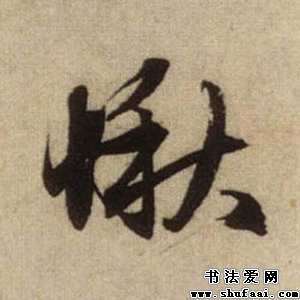 愀
书法爱网
www.shufaai.com